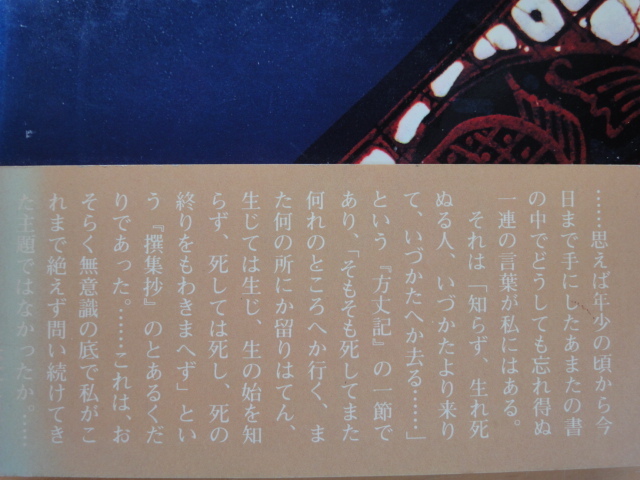 ……思えば年少の頃から今
日まで手にしたあまたの書
の中でどうしても忘れ得ぬ
一連の言葉が私にはある。
それは「知らず、生れ死
ぬる人、いづかたより来り
て、いづかたへか去る……」
という『方丈記』の一節で
あり、「そもそも死してまた
何れのところへか行く、ま
た何の所にか留りはてん、
生じては生じ、生の始を知
らず、死しては死し、死の
終りをもわきまへず」とい
う『撰集抄』のとあるくだ
りであった。……これは、お
そらく無意識の底で私がこ
れまで絶えず問い続けてき
た主題ではなかったか。……